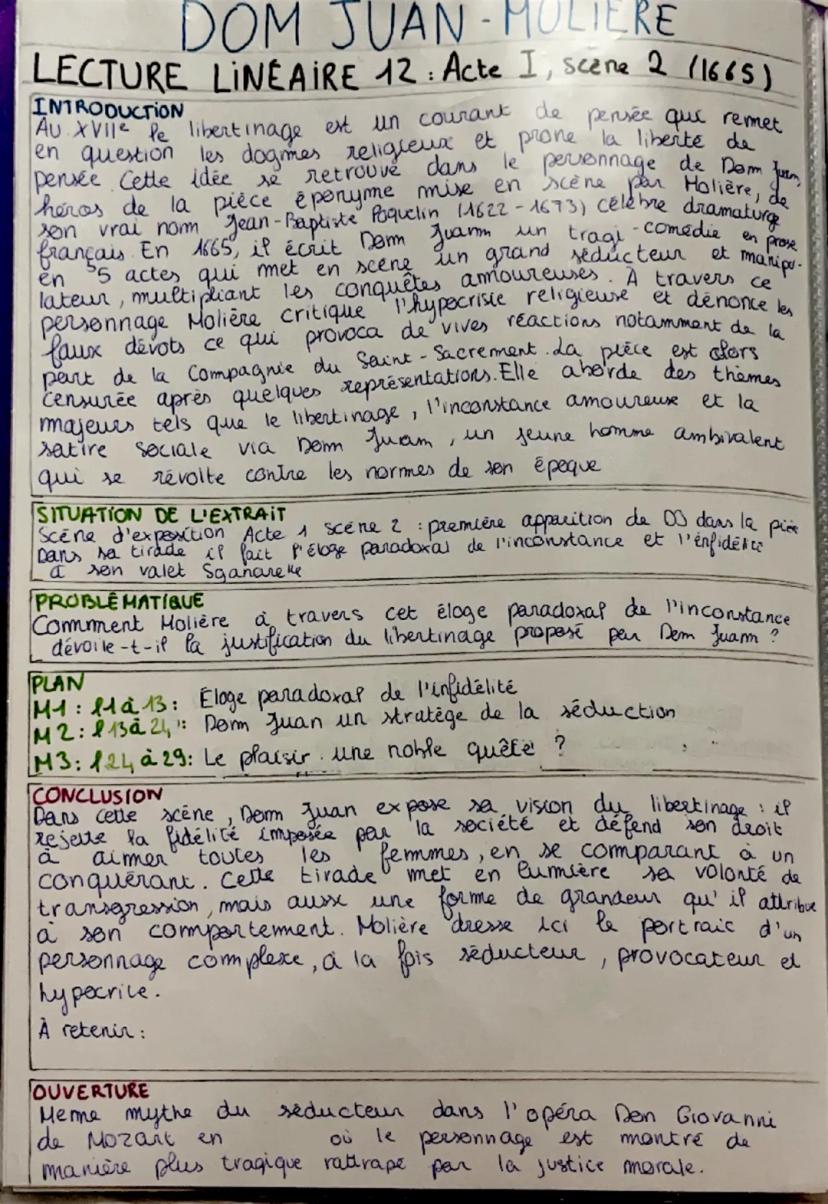 DOM JUAN - MOLIERE
LECTURE LINEAIRE 12 : Acte I, scène 2 (1665)
INTRODUCTION
Au XVIIe le libertinage est un courant de pensée qui remet
en question les dogmes religieux et prone la liberté de
pensée Cette idée se retrouve dans le personnage de Dom Juan,
héros de la pièce éponyme mise en scène par Molière, de
son vrai nom Jean-Baptiste Poquelin (1622 - 1673) célèbre dramaturge
français. En 1665, il écrit Dom Juann un tragi-comédie en prose
en 5 actes qui met en scène un grand séducteur et manipu-
lateur, multipliant les conquêtes amoureuses. À travers ce
personnage Molière critique l'hypocrisie religieuse et dénonce les
faux dévots ce qui provoca de vives réactions notamment de la
part de la Compagnie du Saint-Sacrement. La pièce est alors
censurée après quelques représentations. Elle aborde des thèmes
majeurs tels que le libertinage, l'inconstance amoureuse et la
satire sociale via Dom Juam, un jeune homme ambivalent
qui se révolte contre les normes de son époque
SITUATION DE L'EXTRAIT
Scène d'exposition Acte 1 scène 2 : première apparition de DJ dans la pièce
Dans sa tirade il fait l'éloge paradoxal de l'inconstance et l'énfidélité
à son valet Sganarelle
PROBLÉMATIQUE
Comment Molière à travers cet éloge paradoxal de l'inconstance
dévoile-t-il la justification du libertinage proposé par Dom Juann ?
PLAN
M1 : l1 à 13 : Éloge paradoxal de l'infidélité
M2 : l13 à 24 : Dom Juan un stratège de la séduction
M3 : l24 à 29 : Le plaisir une noble quête ?
CONCLUSION
Dans cette scène, Dom Juan expose sa vision du libertinage : il
rejette la fidélité imposée par la société et défend son droit
à aimer toutes les femmes, en se comparant à un
conquérant. Cette tirade met en lumière sa volonté de
transgression, mais aussi une forme de grandeur qu'il attribue
à son comportement. Molière dresse ici le portrait d'un
personnage complexe, à la fois séducteur, provocateur et
hypocrite.
À retenir :
OUVERTURE
Meme mythe du séducteur dans l'opéra Don Giovanni
de Mozart en où le personnage est montré de
manière plus tragique rattrapé par la justice morale.